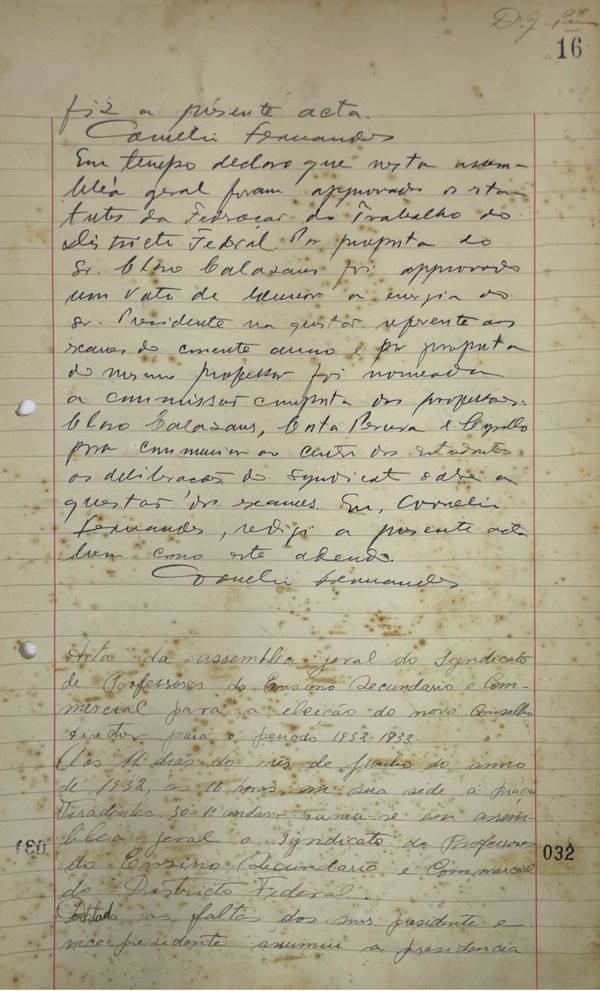 16
fiz a presente acta.
Cornelio Fernandes
Em tempo declaro que nesta assem-
bléa geral foram approvados os esta
tutos da Federação do Trabalho do
Districto Federal. Por proposta do
Sr. Clovo Calazans foi approvado
um voto de louvor a energia do
sr. Presidente na questão referente aos
exames do corrente anno e por proposta
do mesmo professor foi nomeada
a commissão composta dos professores:
Clovo Calazans, Costa Pereira e Cyrillo
para communicar ao centro dos estudantes
as deliberações do Syndicato sobre a
questão dos exames. Eu, Cornelio
Fernandes, redigi a presente acta
bem como este adendo.
Cornelio Fernandes
Acta da assembléa geral do Syndicato
de Professores do Ensino Secundario e Com-
mercial para a eleição do novo Conselho
director para o periodo 1932-1933.
Aos 11 dias do mez de Junho do anno
de 1932, as 16 horas, em sua sede á praça
Tiradentes, 50-1º andar reuniu-se em assem-
bléa geral o Syndicato de Professores
do Ensino Secundario e Commercial
032
do Districto Federal.
as faltas dos snrs presidente e
vice-presidente assumiu a presidencia